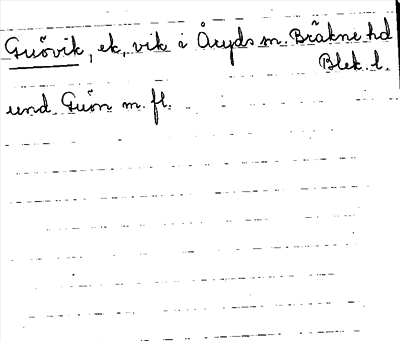 Guövik, ek, vik i Åryds m. Bräkne hd
Blek. l.
und. Guön m. fl.